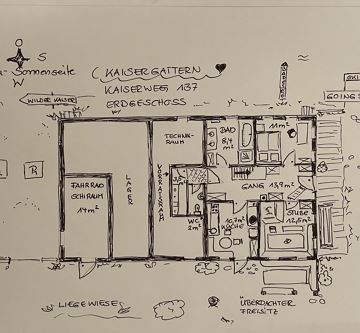 O
S
W
Sonnenseite
KAISERGATTERN
KAISERWEG 137
ERDGESCHOSS
WILDER KAISER
GOING
TECHNIK-
RAUM
BAD
8,4
m²
11m²
FAHRRAD
SCHIRAUM
14m²
LAGER
VORRAUM
WC
2m²
GANG 13,9m²
10,7m²
KÜCHE
STUBE
12,5m²
R
LIEGEWIESE
ÜBERDACHTER
FREISITZ